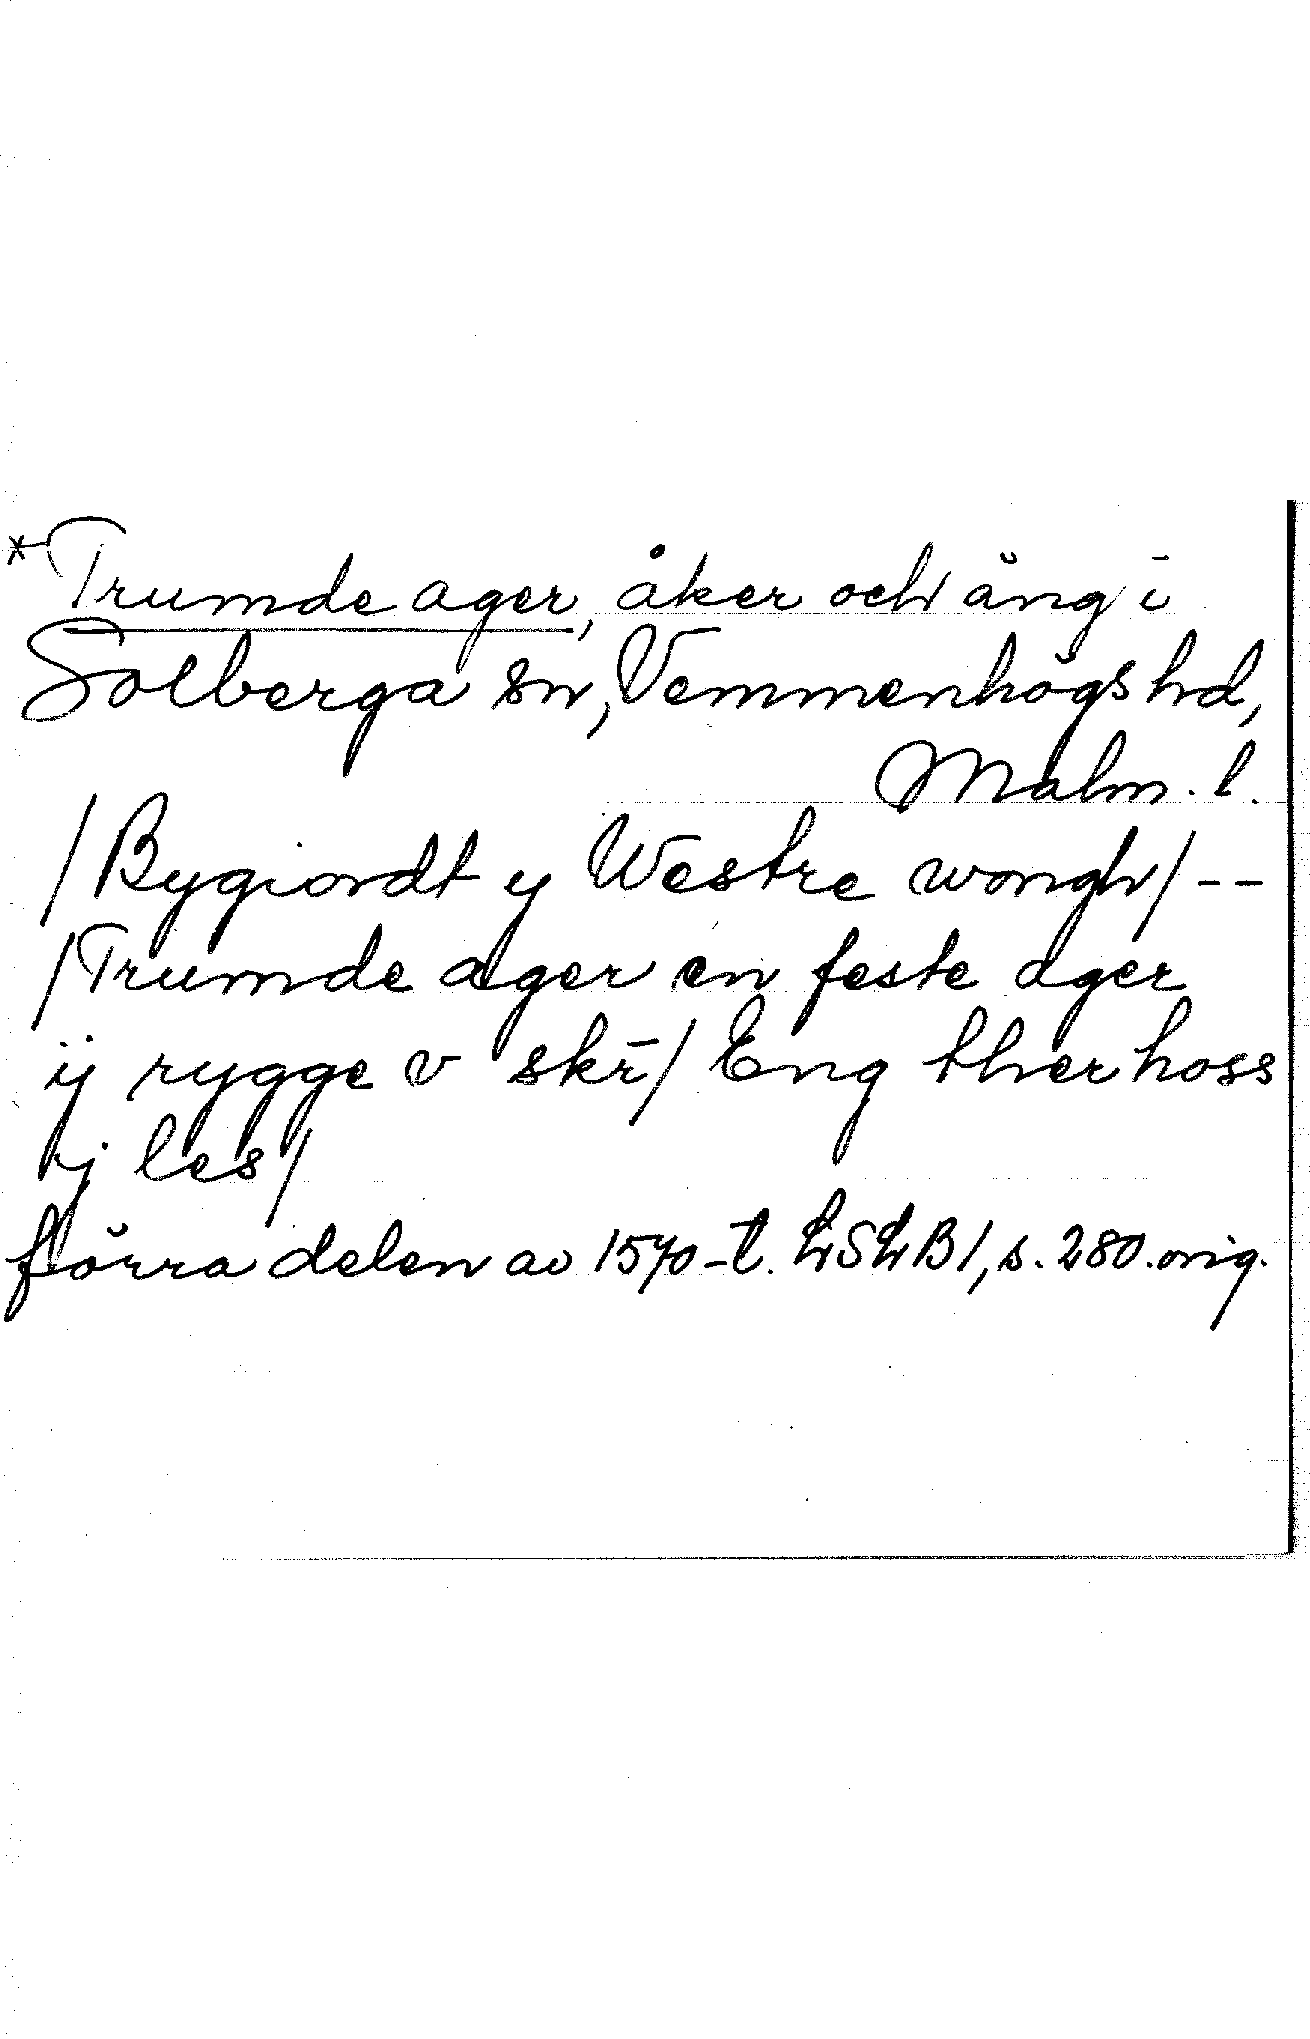 *Trumde ager, åker och äng i
Solberga sn, Vemmenhögs hd,
Malm. l.
/Bygiordt y Westre wongh/ --
/Trumde ager en feste ager
ij rygge v skr̄/ Eng ther hoss
j les/
förra delen av 1570-t. LSLB1, s. 280. orig.